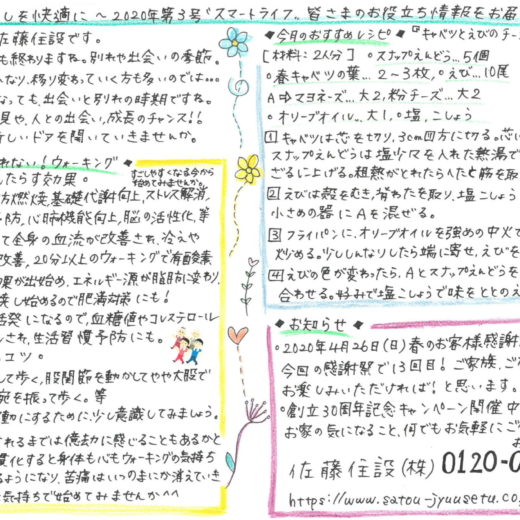 しを快適に～2020年第3号"スマートライフ"皆さまのお役立ち情報をお届
佐藤住設です。
も終わりますね。別れや出会いの季節。
なり、移り変わっていく方も多いのでは...
なっても、出会いと別れの時期ですね。
見や、人との出会い、成長のチャンス!!
新しいドアを開いていきませんか。
れない!ウォーキング
すごしやすくなる今から
始めてみませんか。
したらす効果。
方燃焼、基礎代謝向上、ストレス解消、
予防、心肺機能向上、脳の活性化、等
て全身の血流が改善され、冷えや
改善、20分以上のウォーキングで有酸素
果が出始め、エネルギー源が脂肪に変わり、
し始めるので肥満対策にも!
活発になるので、血糖値やコレステロール
され、生活習慣予防にも。
コツ。
して歩く、股関節を動かしてやや大股で
腕を振って歩く。等
動にするために、少し意識してみましょう。
されるまでは億劫に感じることもあるかと
慣化すると身体も心もウォーキングの気持ち
るようになり、苦痛はいつのまにか消えていき
気持ちで始めてみませんか^^
今月のおすすめレシピ 『キャベツとえびのチー
[材料:2人分] ○スナップえんどう...5個
○春キャベツの葉...2~3枚,○えび...10尾
A⇒マヨネーズ...大2,粉チーズ...大2
○オリーブオイル...大1,○塩,こしょう
1 キャベツは芯を切り,3cm四方に切る。芯
スナップえんどうは塩少々を入れた熱湯で
ざるに上げる。粗熱がとれたら人たと筋を取
2 えびは殻をむき,背わたを取り,塩こしょう
小さめの器にAを混ぜる。
3 フライパンに,オリーブオイルを強めの中火で
炒める。少ししんなりしたら端に寄せ,えびを
4 えびの色が変わったら,Aとスナップえんどうを
合わせる。好みで塩こしょうで味をととのえ
お知らせ
・2020年4月26日(日)春のお客様感謝
今回の感謝祭で13回目!ご家族,ご
お楽しみいただければ!と思います。
・創立30周年記念キャンペーン開催中
お家の気になること,何でもお気軽にご
佐藤住設(株) 0120-0
https://www.satou-jyuusetu.co